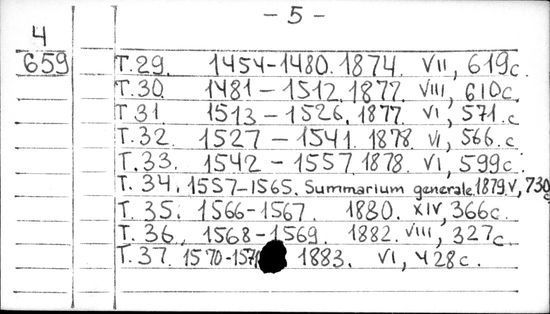 - 5 -
4
659
T.29. 1454-1480. 1874. VII, 619c.
T.30. 1481-1512. 1877. VIII, 610c.
T 31 1513-1526. 1877. VI, 571.c
T.32. 1527-1541. 1878. VI, 566.c
T.33. 1542-1557. 1878. VI, 599c.
T. 34. 1557-1565. Summarium generale. 1879. V, 730c
T. 35. 1566-1567. 1880. XIV, 366c.
T. 36. 1568-1569. 1882. VIII, 327c
T. 37. 1570-157 1883. VI, 428c.